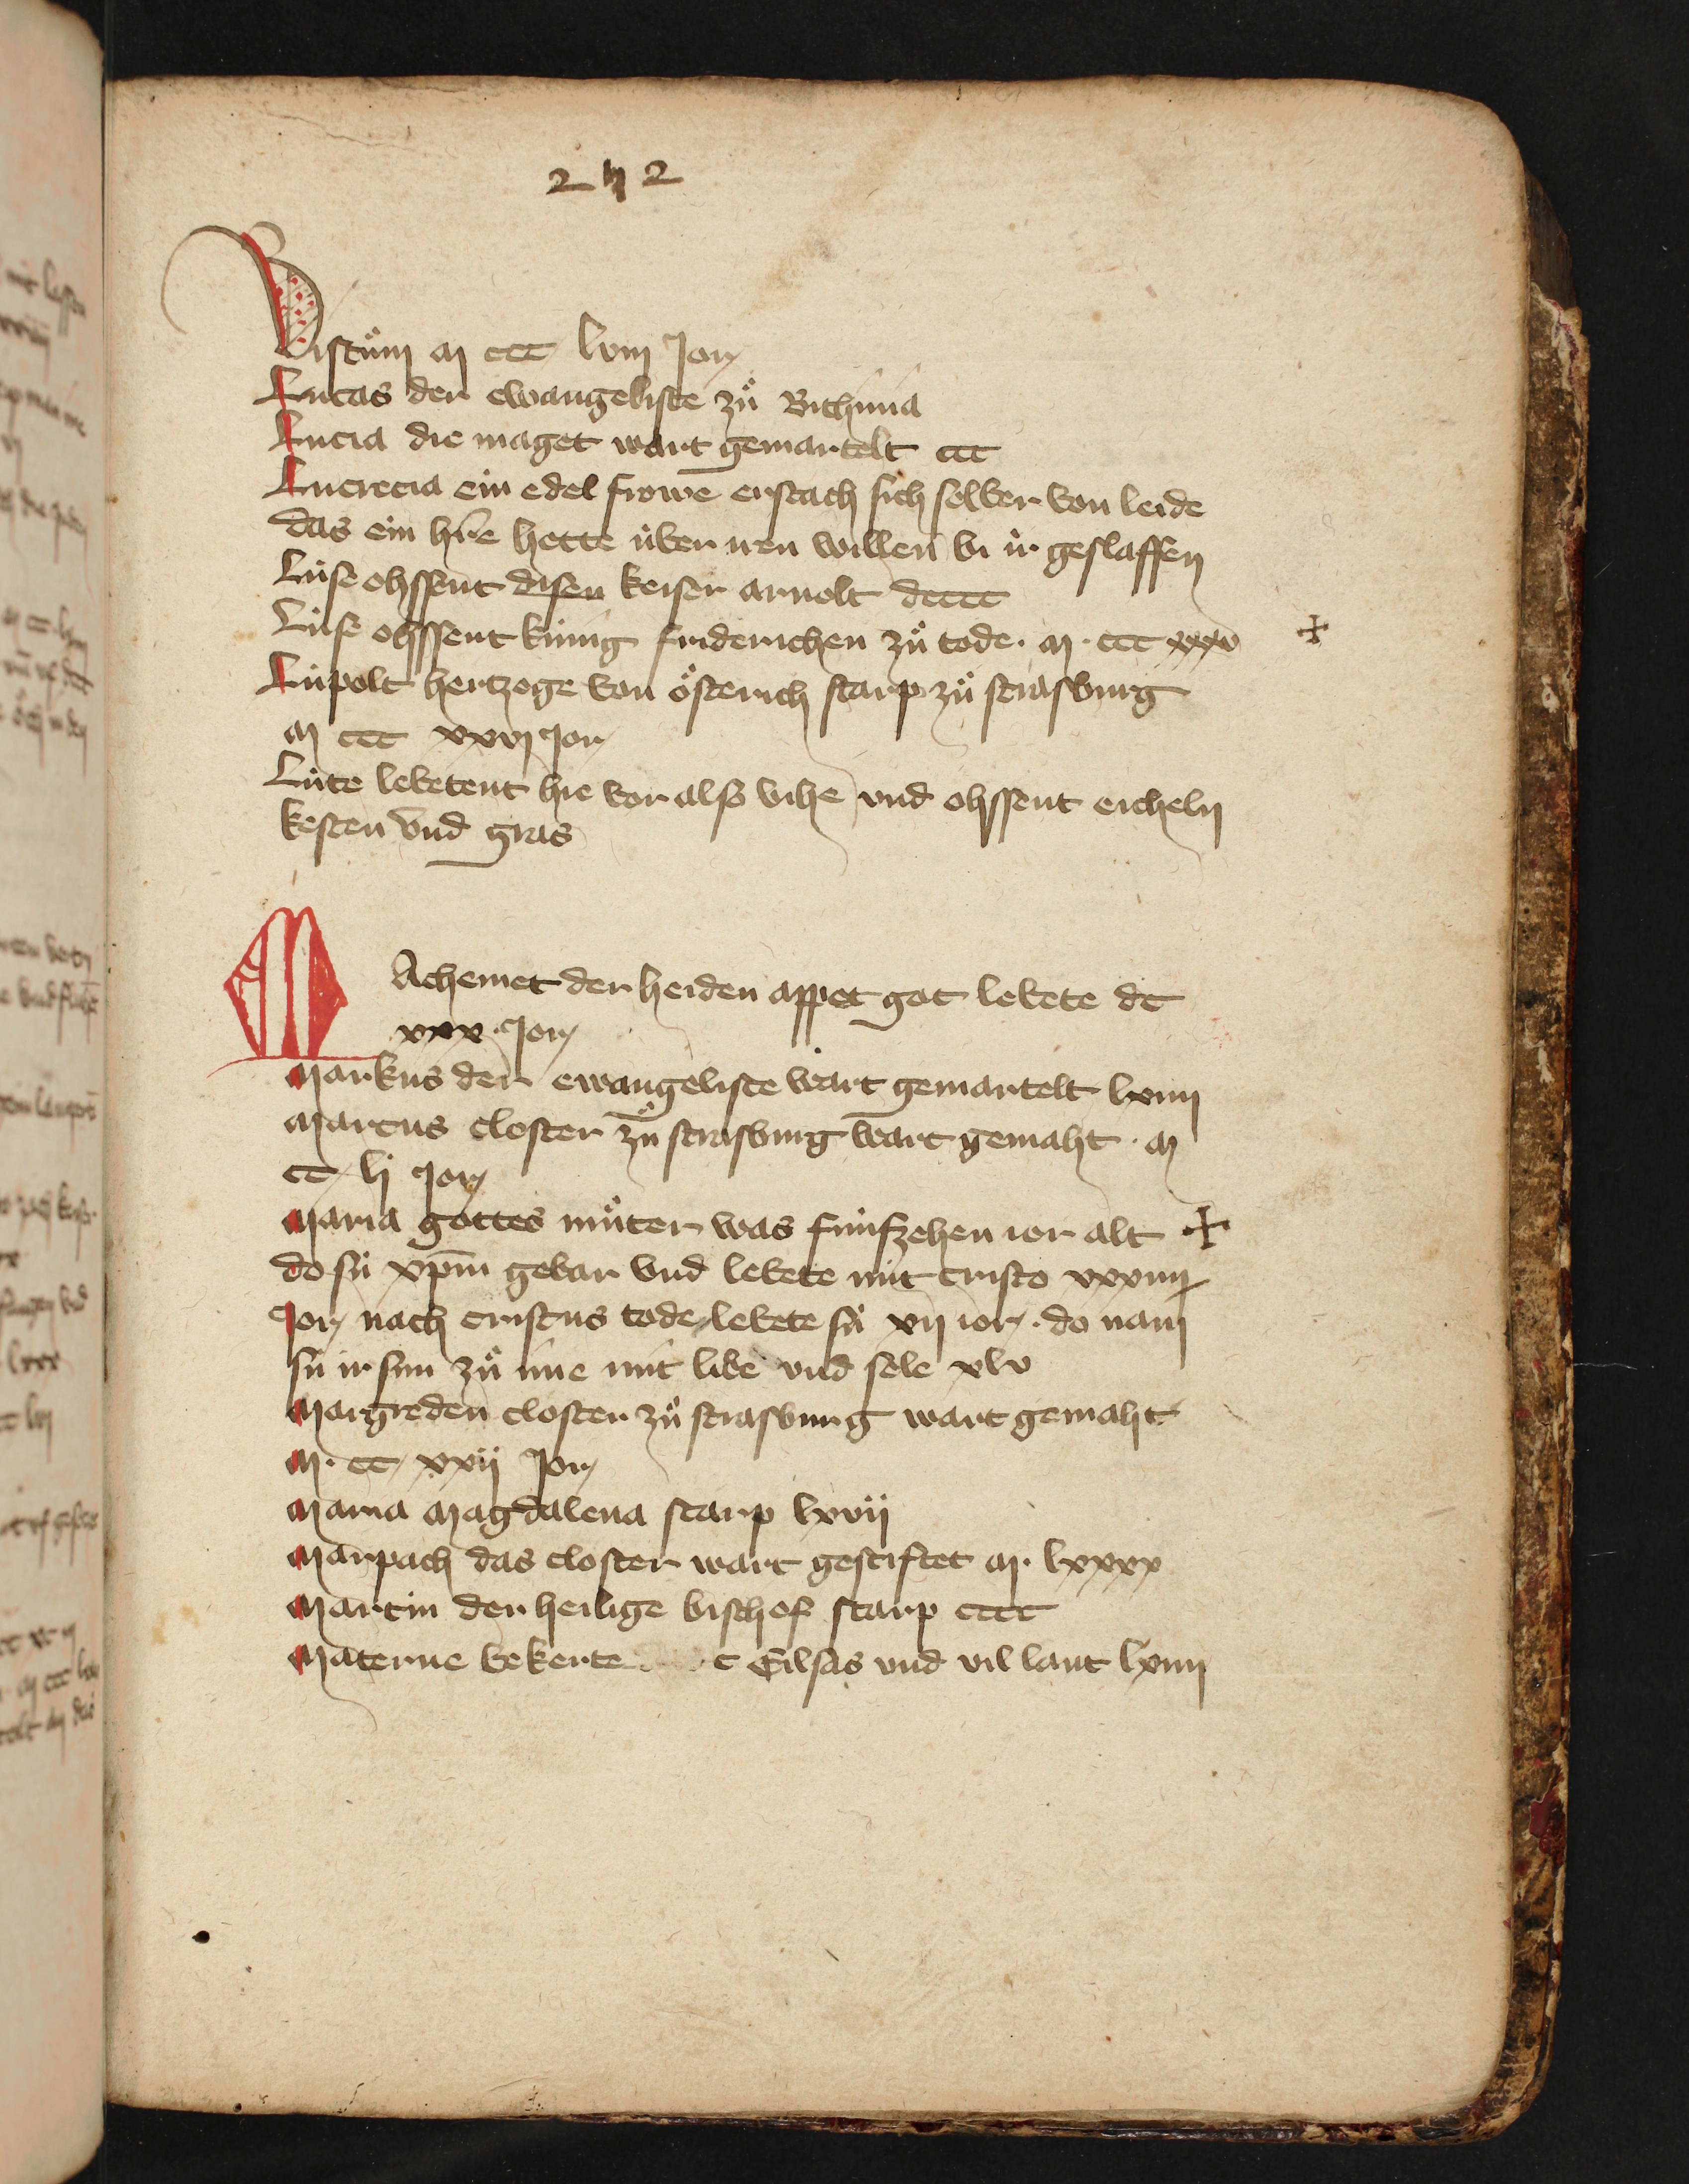 242
Bistům m ccc lviij Jor
Lucas der ewangeliste zů Bithinia
Lucia die maget wart gemartelt ccc
Lucrecia ein edel frowe erstach sich selber von leide
das ein hre hette über iren willen bi ir geslaffen
Lüse ohssent disen keiser arnolt dcccc
Lüse ohssent künig friderichen zů tode · m · ccc xxx
Lüpolt hertzoge von österich starp zů strasburg
m ccc xxvj Jor
Lüte lebetent hie vor also vihe vnd ohssent eicheln
kesten vnd gras
MAchemet der heiden appet got lebete dc
xxx · Jor
Markus der ewangeliste wart gemartelt lxiiij
Marcus closter zů strasburg wart gemaht · m
cc lj Jor
Maria gottes můter was fünfzehen ior alt
do sü xpm gebar vnd lebete mit cristo xxxiiij
Jor nach cristus tode lebete sü xij ior · do nam
sü ir sun zů ime mit libe vnd sele xlv
Margreden closter zů strasburg wart gemaht
m · cc xxij Jor
Maria Magdalena starp lxvij
Marpach das closter wart gestiftet m · lxxxx
Martin der heilige bischof starp cccc
Materne bekerte Eilsas vnd vil lant lxiiij